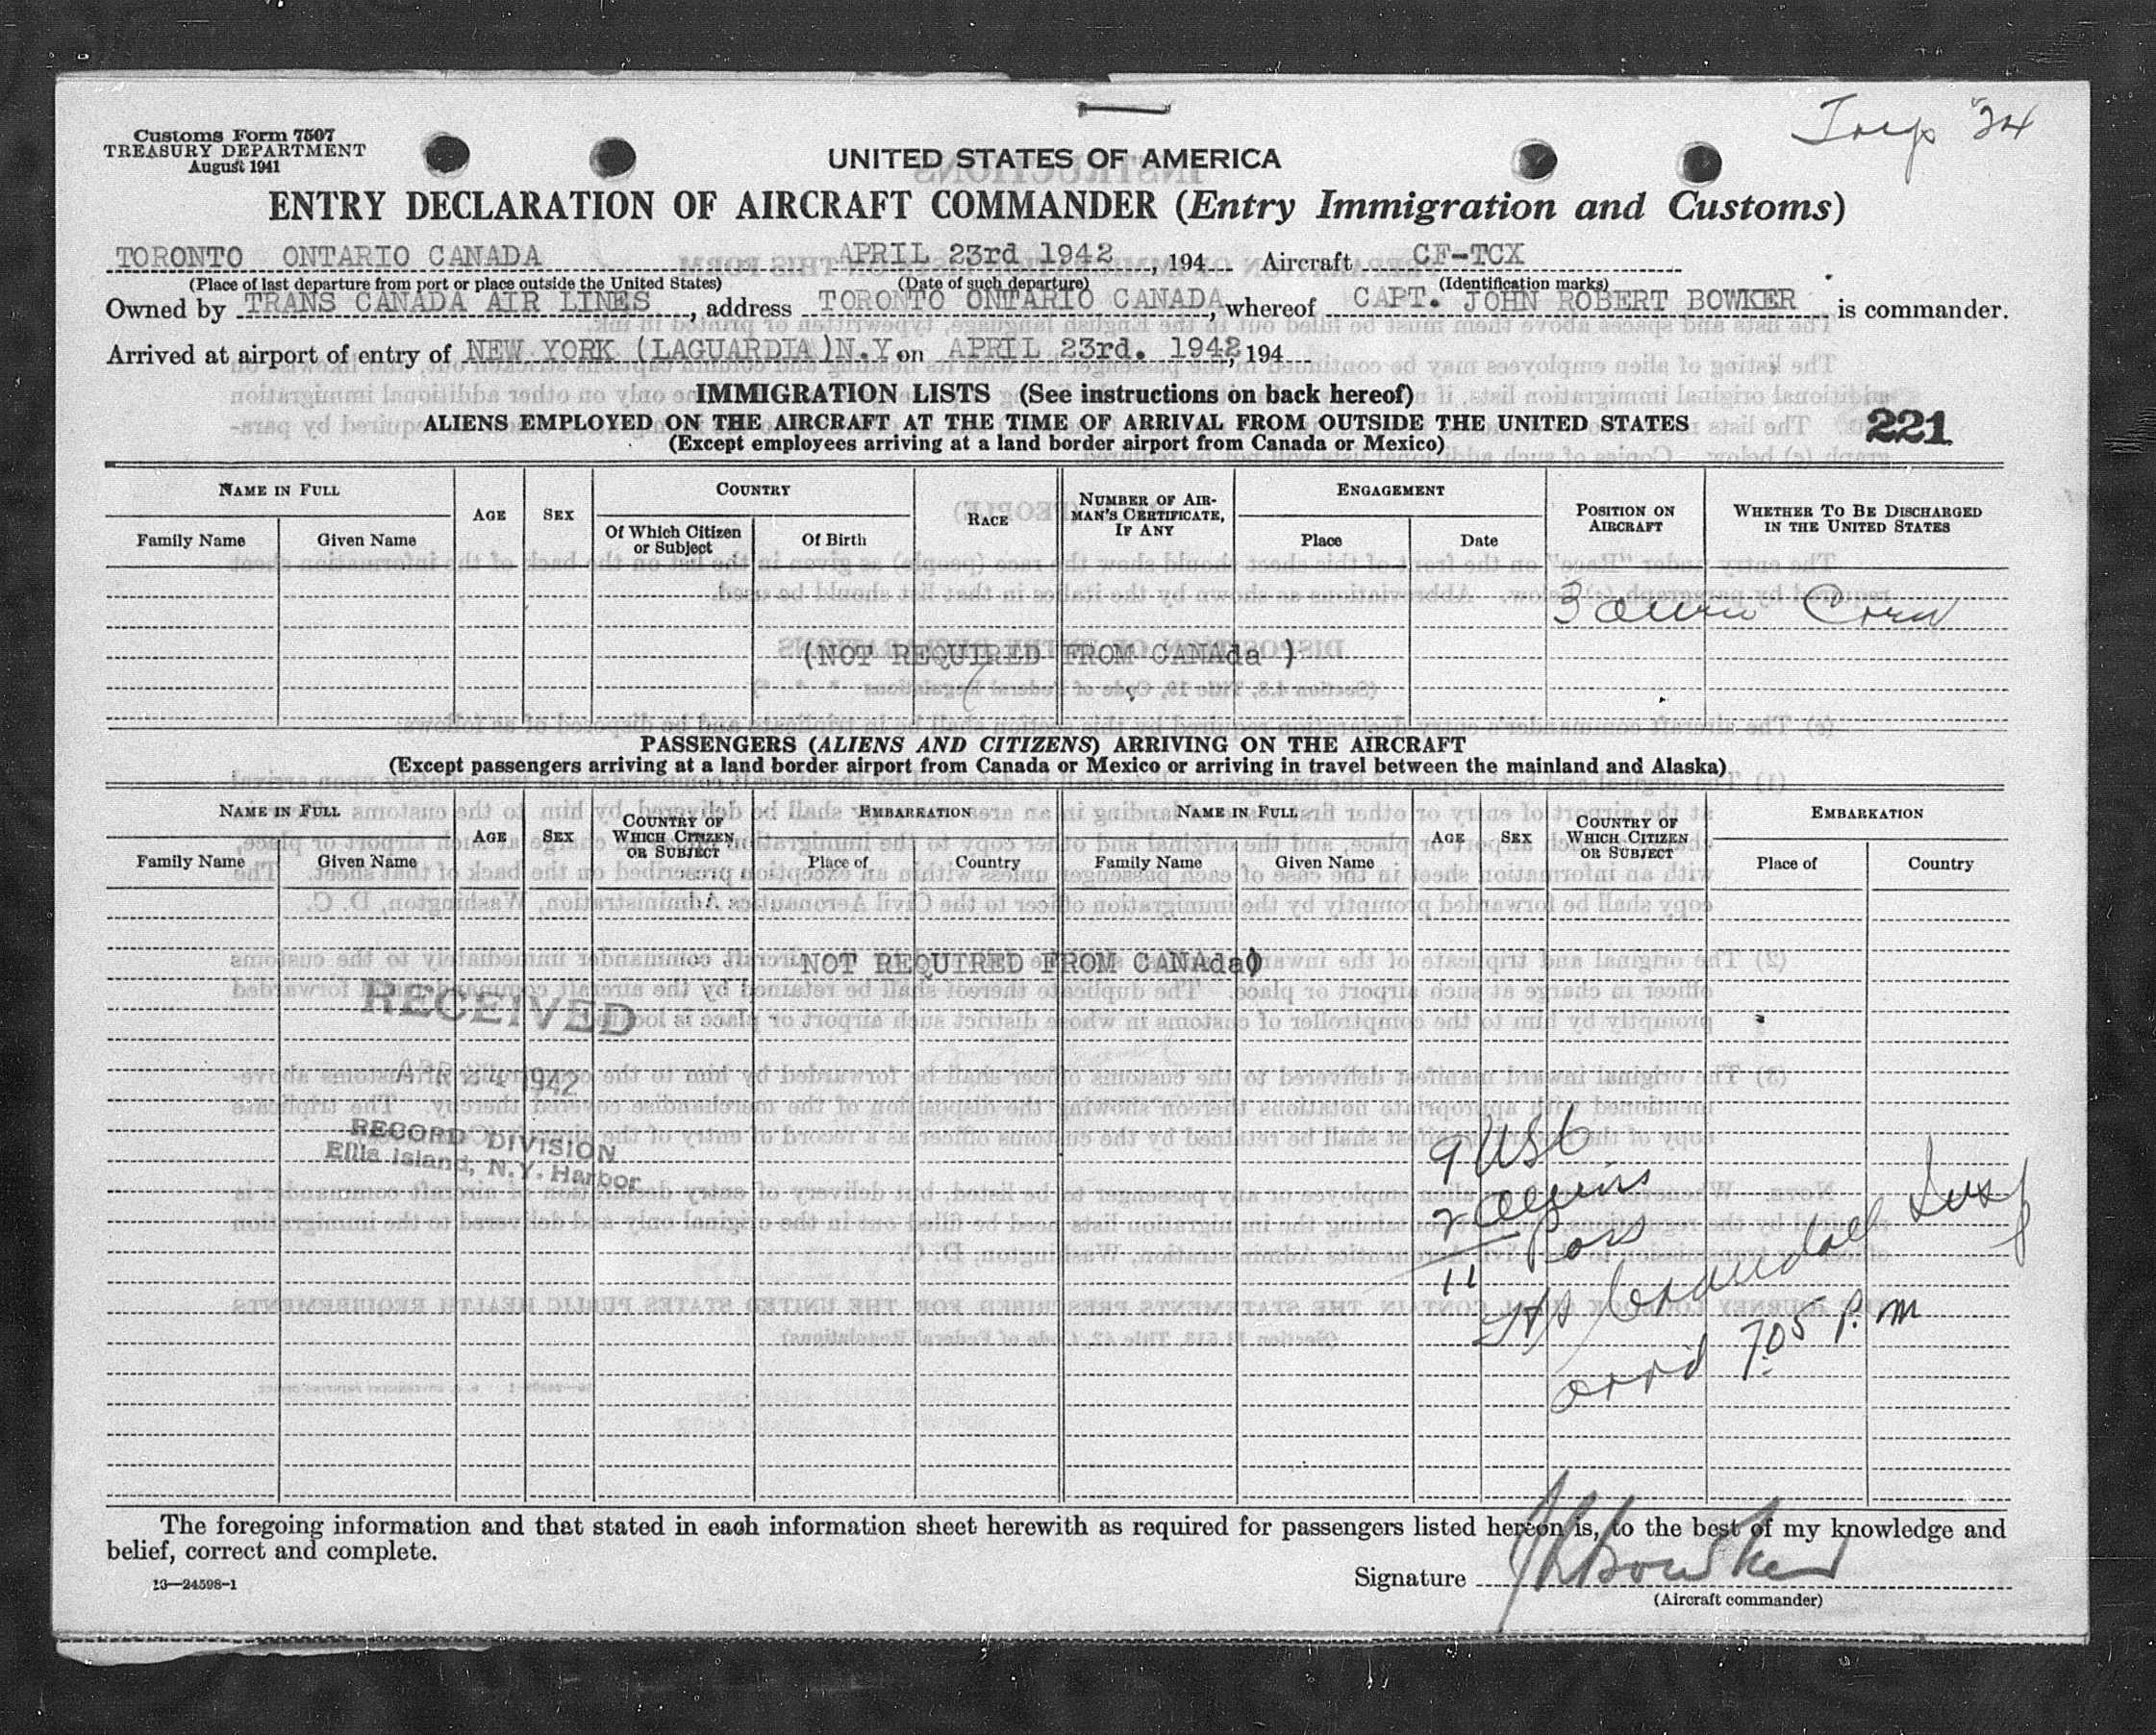 Customs Form 7507
TREASURY DEPARTMENT
August 1941
Trip 34
UNITED STATES OF AMERICA
ENTRY DECLARATION OF AIRCRAFT COMMANDER (Entry Immigration and Customs)
TORONTO ONTARIO CANADA APRIL 23rd 1942, 194 Aircraft CF-TCX
(Place of last departure from port or place outside the United States) (Date of such departure) (Identification marks)
Owned by TRANS CANADA AIR LINES, address TORONTO ONTARIO CANADA, whereof CAPT. JOHN ROBERT BOWKER is commander.
Arrived at airport of entry of NEW YORK (LAGUARDIA)N.Y on APRIL 23rd. 1942, 194
IMMIGRATION LISTS (See instructions on back hereof)
ALIENS EMPLOYED ON THE AIRCRAFT AT THE TIME OF ARRIVAL FROM OUTSIDE THE UNITED STATES
221
(Except employees arriving at a land border airport from Canada or Mexico)
NAME IN FULL AGE SEX COUNTRY RACE NUMBER OF AIRMAN'S CERTIFICATE, IF ANY ENGAGEMENT POSITION ON AIRCRAFT WHETHER TO BE DISCHARGED IN THE UNITED STATES
Family Name Given Name Of Which Citizen or Subject Of Birth Place Date
3 alien Crew
(NOT REQUIRED FROM CANAda )
PASSENGERS (ALIENS AND CITIZENS) ARRIVING ON THE AIRCRAFT
(Except passengers arriving at a land border airport from Canada or Mexico or arriving in travel between the mainland and Alaska)
NAME IN FULL AGE SEX COUNTRY OF WHICH CITIZEN OR SUBJECT EMBARKATION NAME IN FULL AGE SEX COUNTRY OF WHICH CITIZEN OR SUBJECT EMBARKATION
Family Name Given Name Place of Country Family Name Given Name Place of Country
NOT REQUIRED FROM CANAda)
RECEIVED
APR 24 1942
RECORD DIVISION
Ellis Island, N.Y. Harbor
9 USC
2 aliens
11 Pass
Crandall Insp
arrd 7.05 P.M
The foregoing information and that stated in each information sheet herewith as required for passengers listed hereon is, to the best of my knowledge and
belief, correct and complete.
13—24598-1
Signature JRBowker
(Aircraft commander)